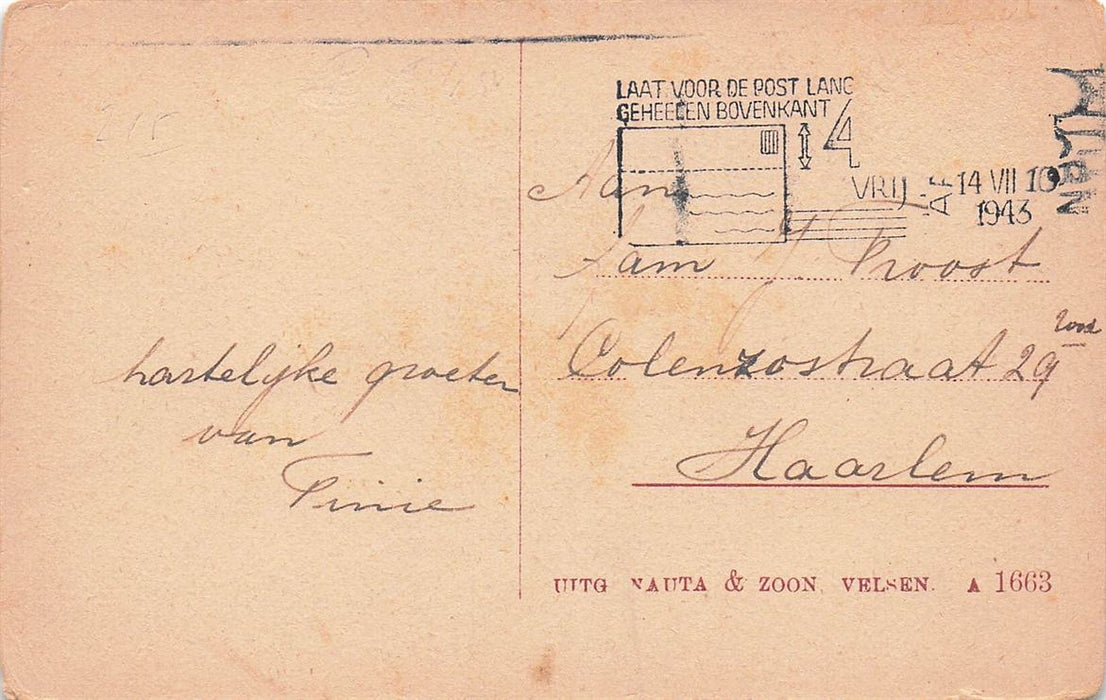 LAAT VOOR DE POST LANG
GEHEELEN BOVENKANT 4
VRIJ
14 VII 10
1943
Aan
Fam J Proost
Colenzostraat 29 rood
Haarlem
hartelijke groeten
van
Tinie
UITG NAUTA & ZOON, VELSEN. A 1663